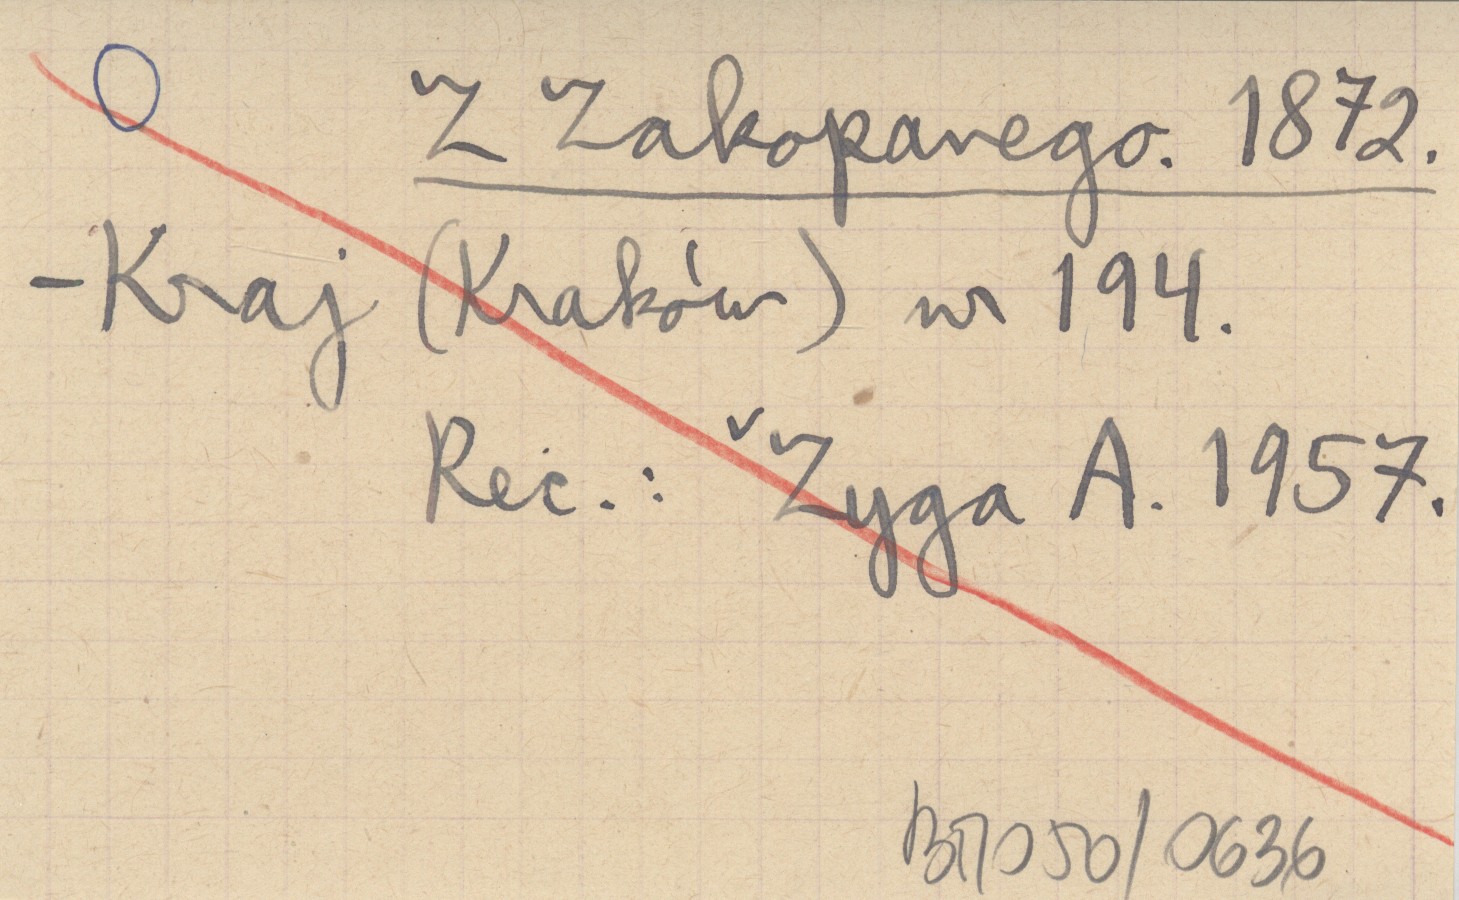 Z Zakopanego. 1872.
- Kraj (Kraków) nr 194.
Rec.: Żyga A. 1957.
050/0636